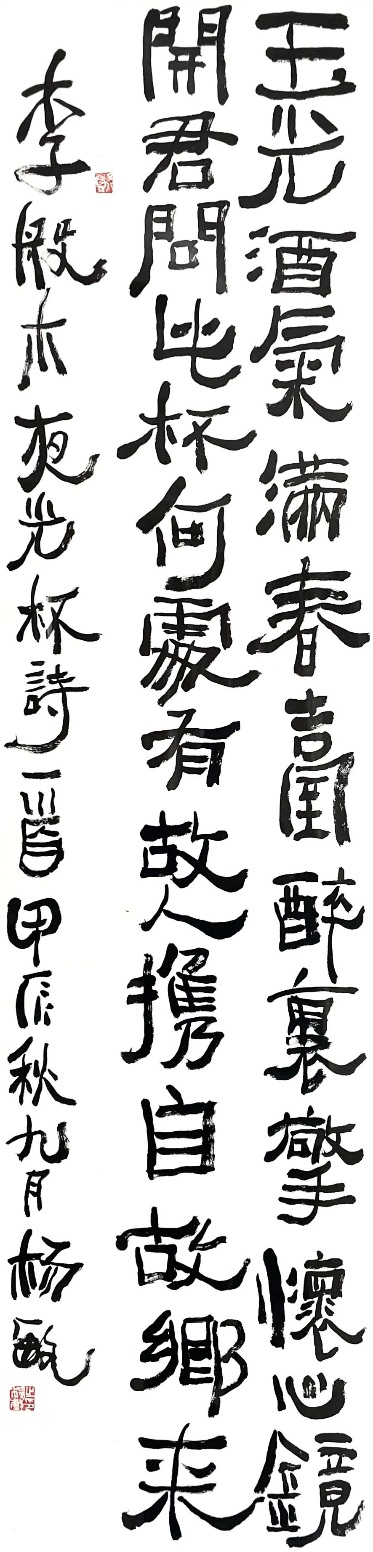 玉光酒氣滿春臺醉裏擎懷心鏡
開君問此杯何處有故人携自故鄉来
李殿木夜光杯詩一首甲辰秋九月杨敏